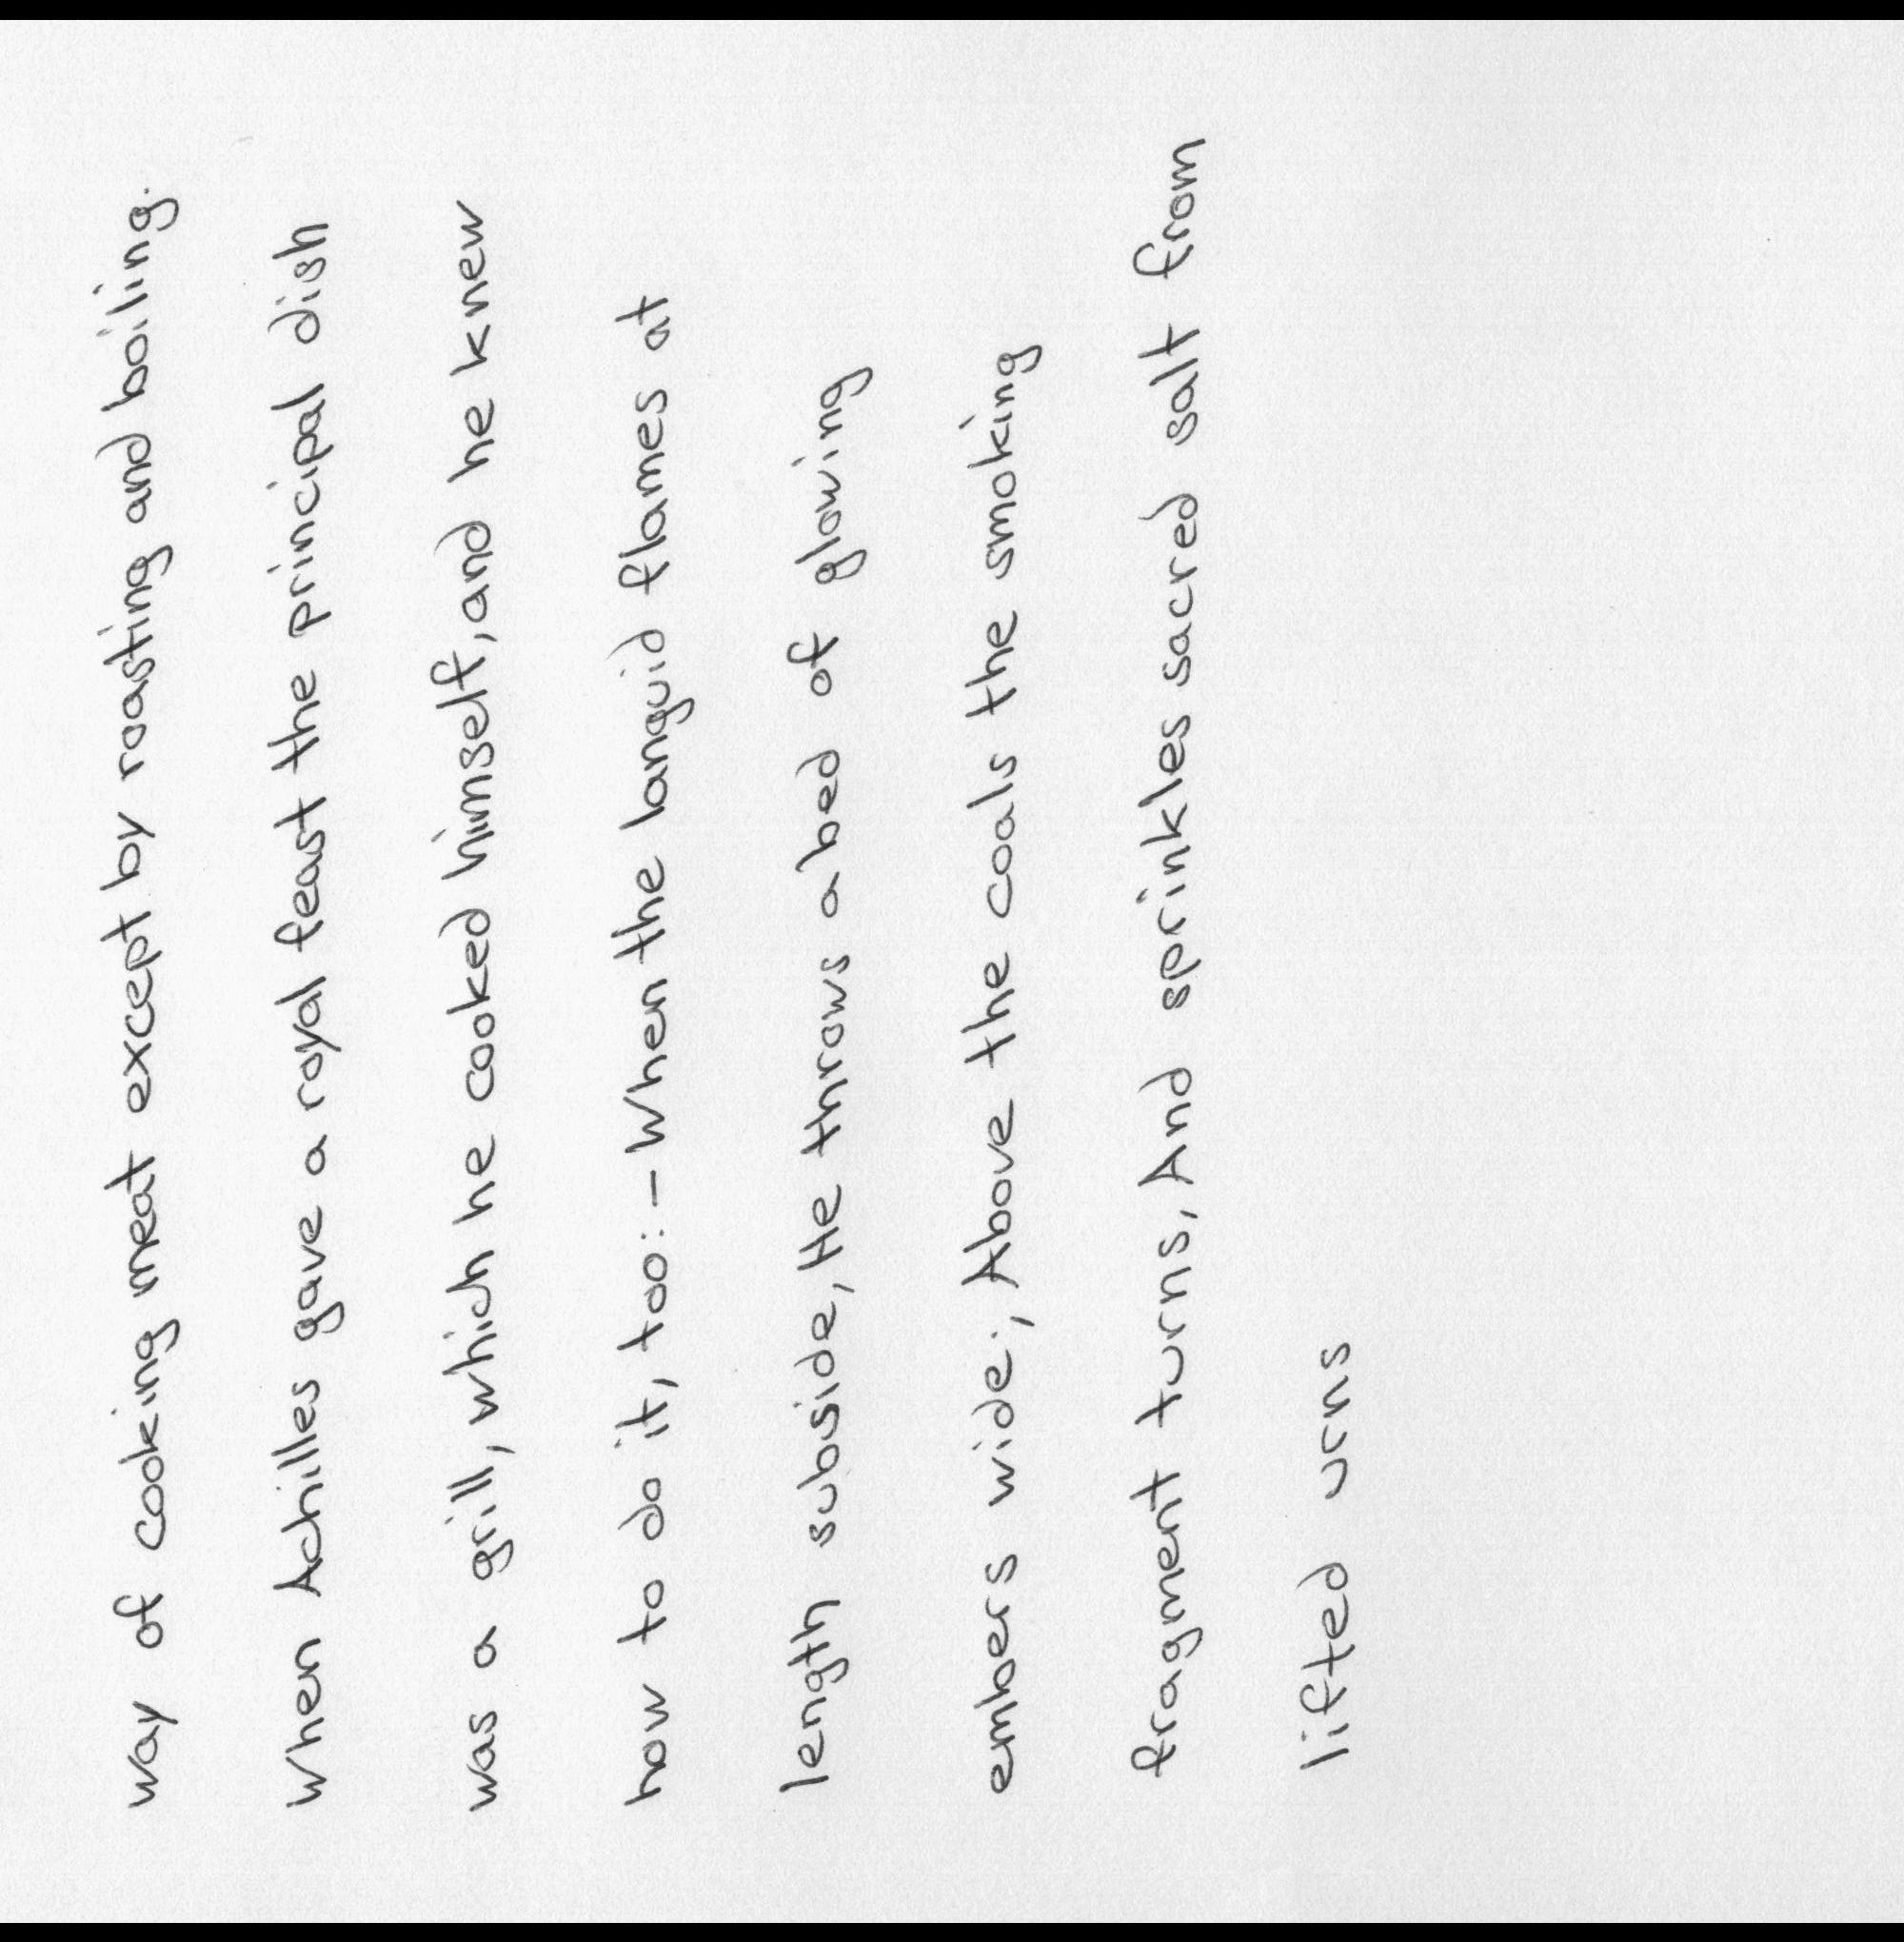 way of cooking meat except by roasting and boiling.
When Achilles gave a royal feast the principal dish
was a grill, which he cooked himself, and he knew
how to do it, too: - When the languid flames at
length subside, He throws a bed of glowing
embers wide;, Above the coals the smoking
fragment turns, And sprinkles sacred salt from
lifted urns